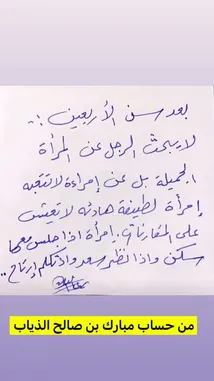 بعد سن الأربعين :..
لا يبحث الرجل عن المرأة
الجميلة بل عن إمراءة لا تتعبه
إمرأة لطيفة هادئه لا تعيش
على المقارنات . إمرأة اذا جلس معها
سكن واذا نظر سعد واذ تكلم إرتاح ..
من حساب مبارك بن صالح الذياب